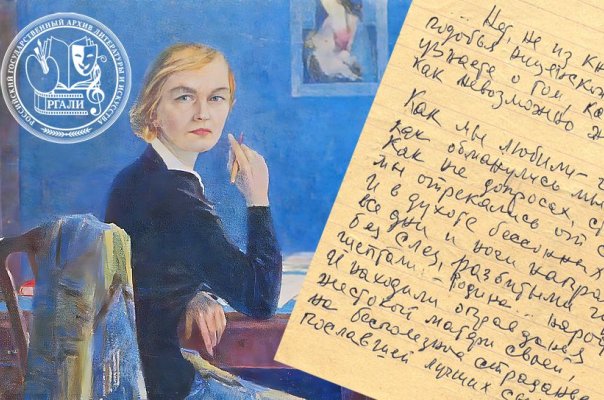 РОССИЙСКИЙ ГОСУДАРСТВЕННЫЙ АРХИВ ЛИТЕРАТУРЫ И ИСКУССТВА
РГАЛИ
...Нет, не из кн
подобья нищенской
узнаете о том, ка
как невозможно ж
Как мы любили – г
как обманулись мы
как на допросах, с
мы отрекались от с
И в духоте бессонных
все дни и ночи напро
без слез, разбитыми г
шептали: – Родина... наро
И находили оправданья
жестокой матери своей,
на бесполезное страданье
пославшей лучших сы